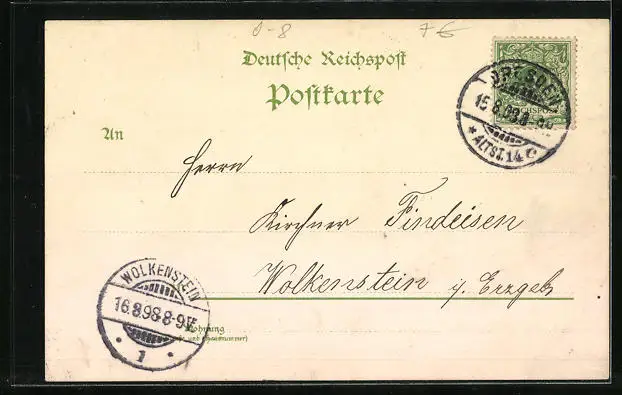 0-8
7€
Deutsche Reichspost
Postkarte
DRESDEN
15.8.98.8-9N
* ALTST. 14 c
An
Herrn
Kirchner Findeisen
Wolkenstein i/ Erzgeb
WOLKENSTEIN
16.8.98.8-9V
1
Wohnung
(Straße und Hausnummer)